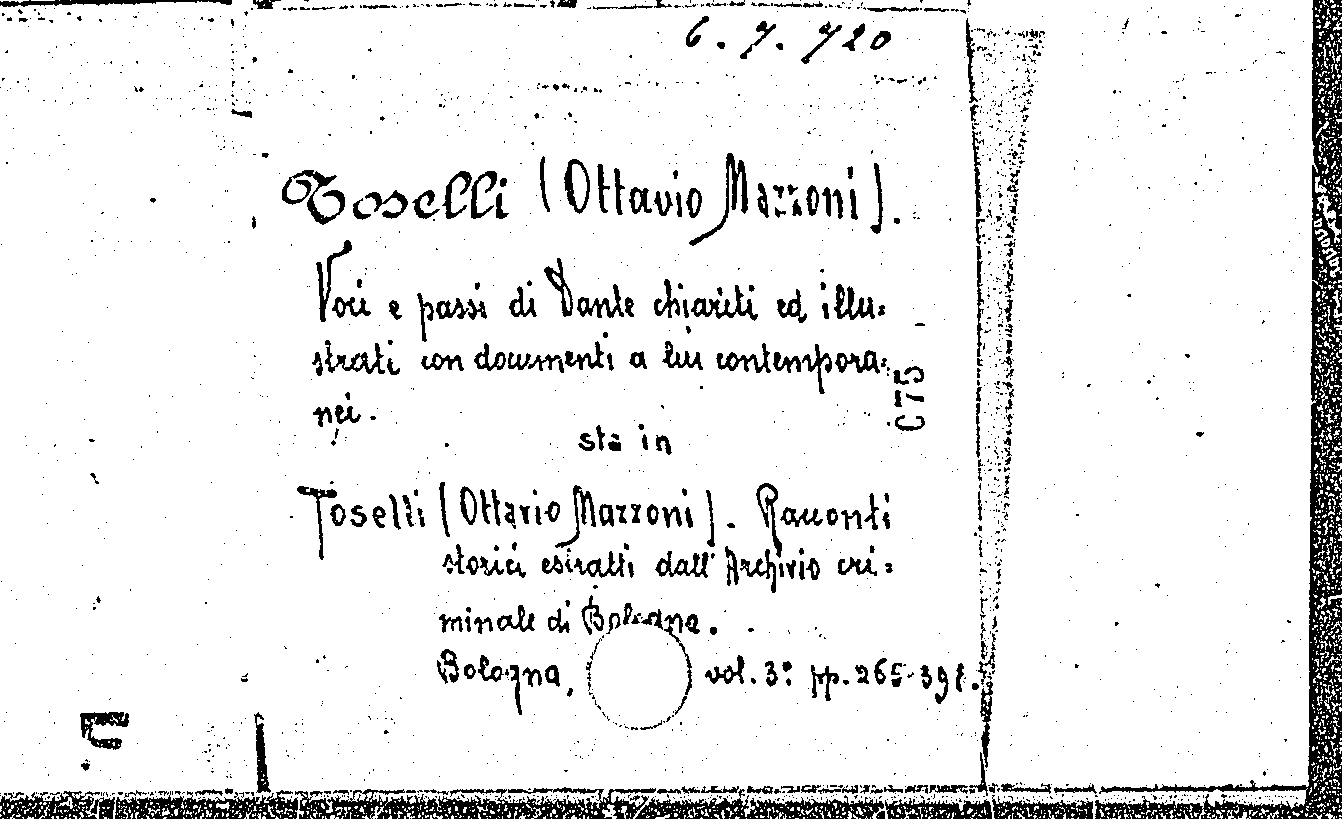 6. 7. 720
Toselli (Ottavio Mazzoni).
Voci e passi di Dante chiariti ed illu=
strati con documenti a lui contempora=
nei.
C75
sta in
Toselli (Ottavio Mazzoni). Racconti
storici estratti dall'Archivio cri=
minale di Bologna.
Bologna, vol. 3º pp. 265-398.